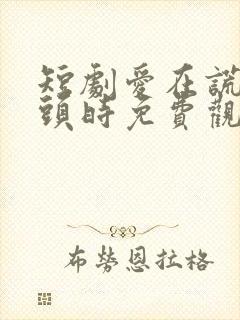 短劇愛在謊
頭時免費觀
布勞恩拉格